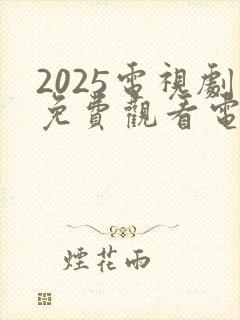 2025電視劇
免費觀看電
煙花雨